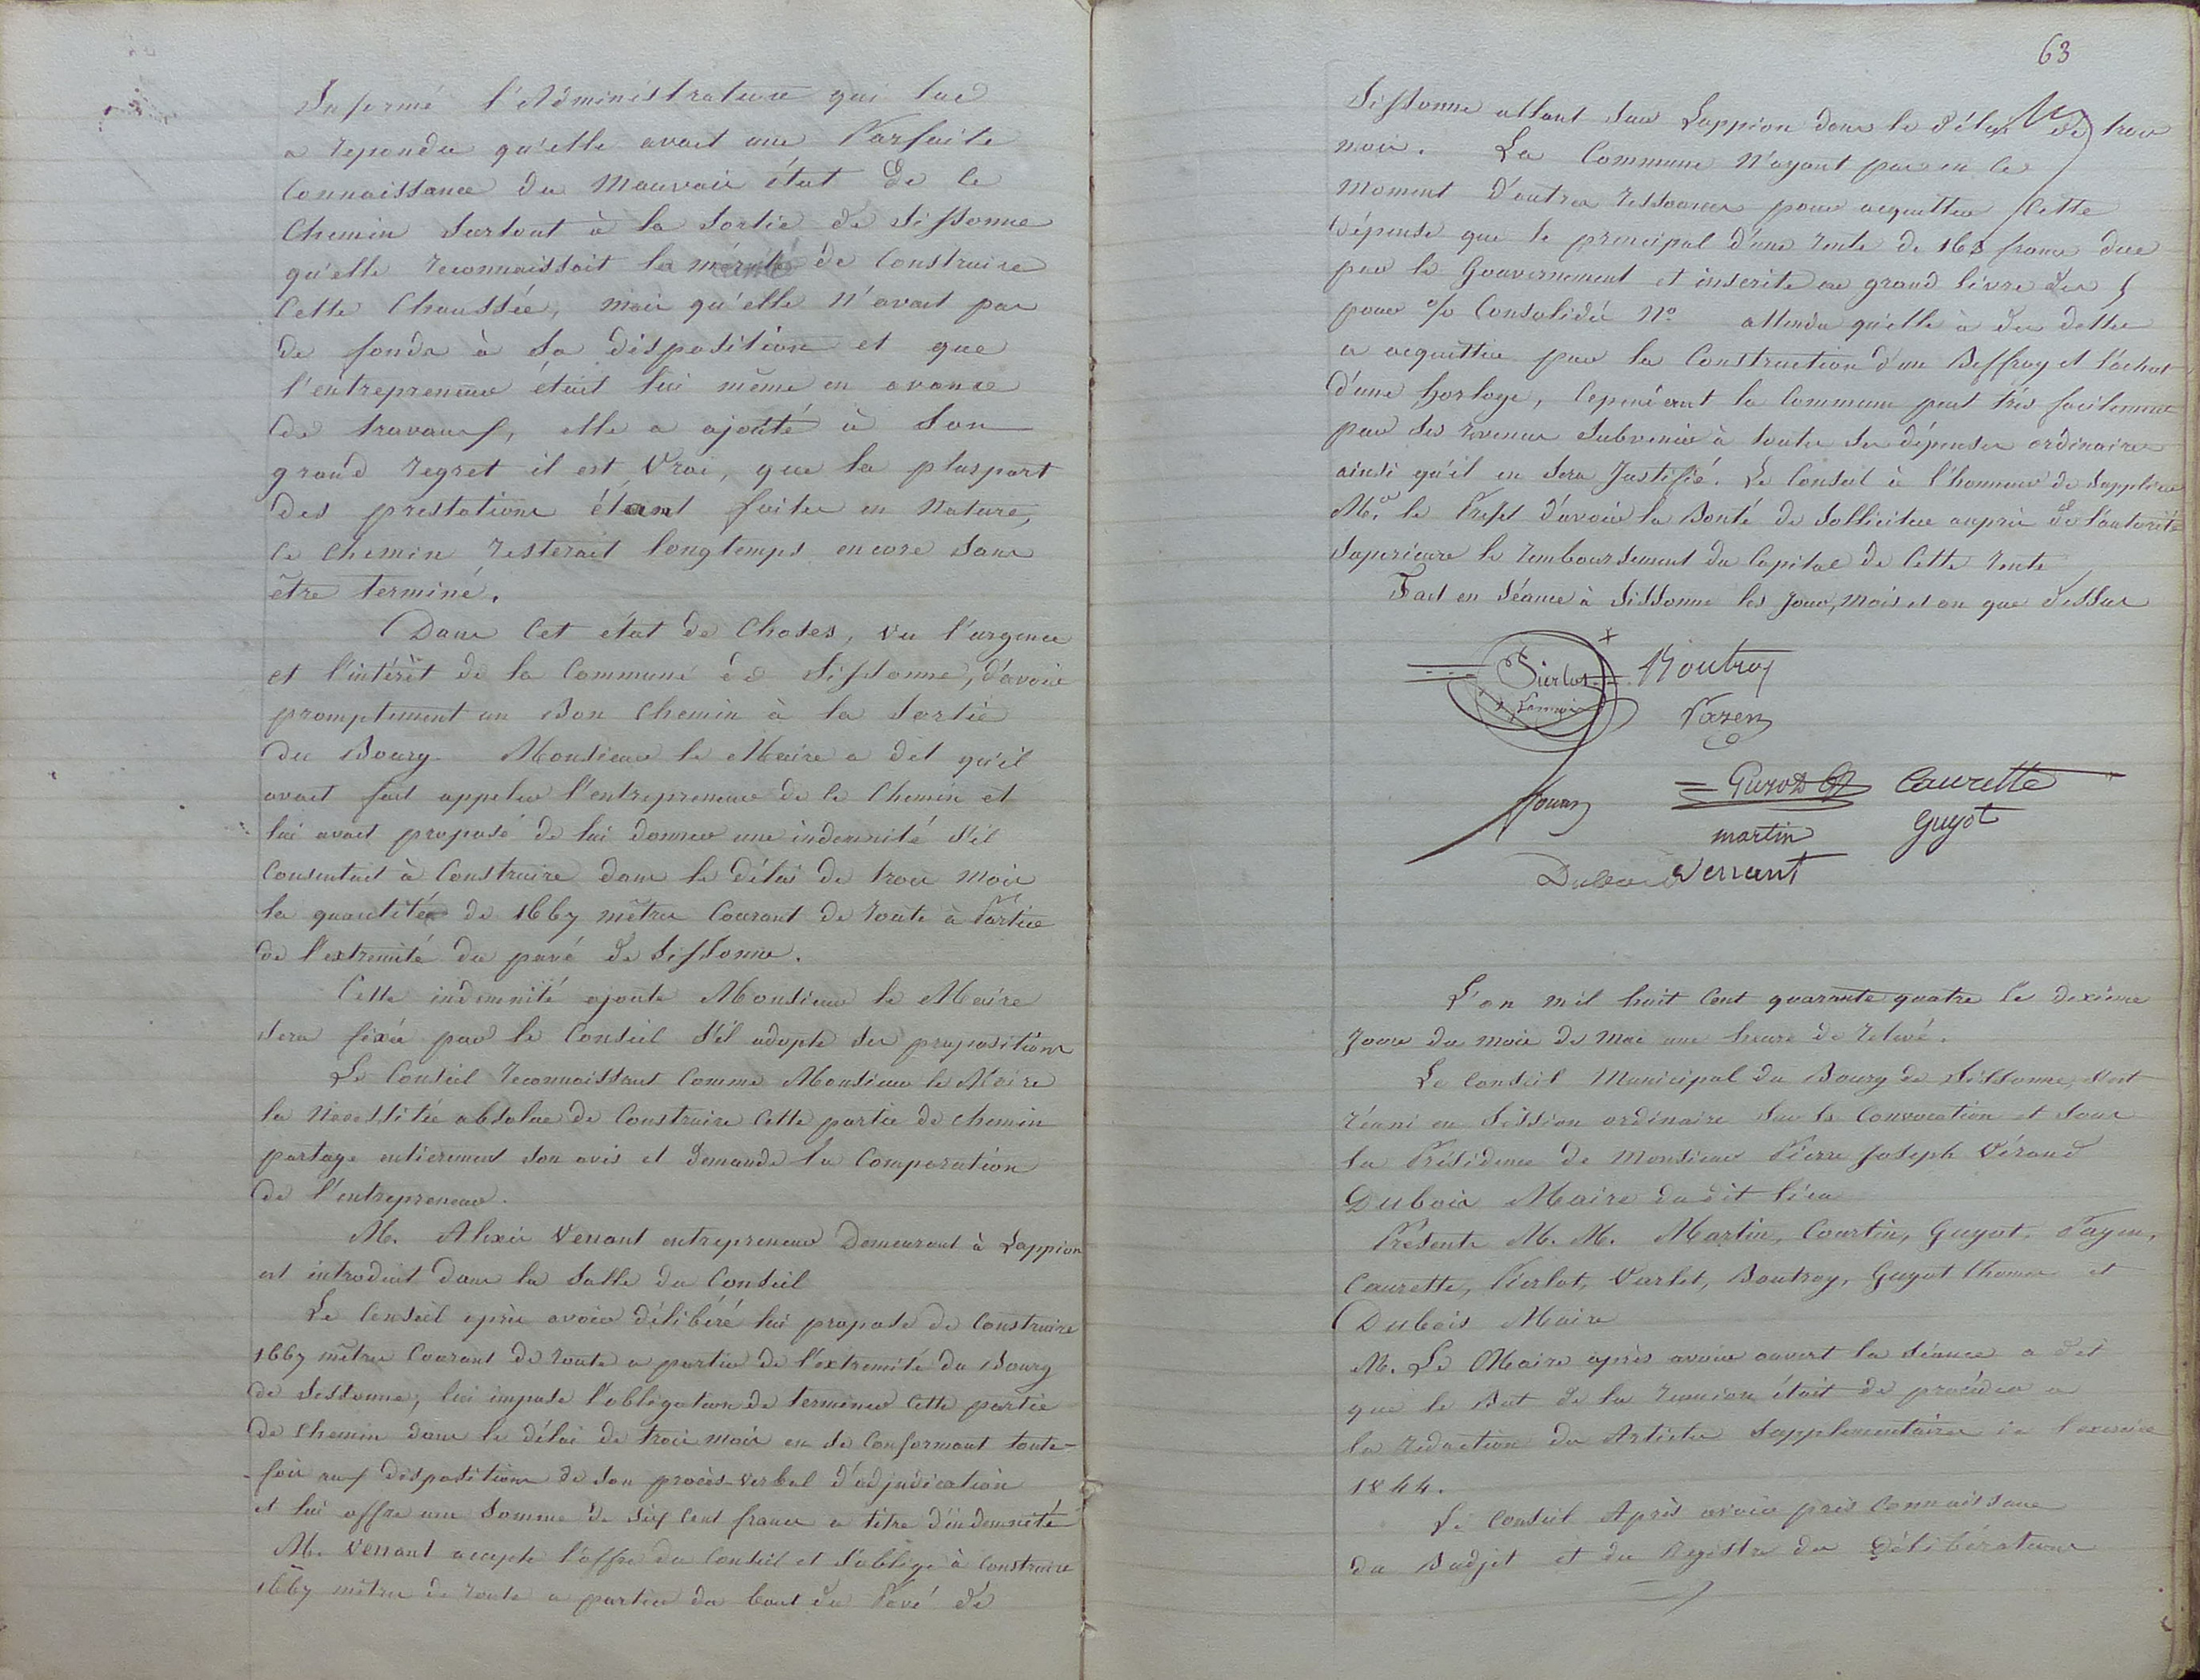 Informé l'Administration qui lui
a répondu qu'elle avait une Parfaite
Connaissance du Mauvais état de ce
Chemin Surtout à la Sortie de Sissonne
qu'elle reconnaissait la de Construire
Cette Chaussée, mais qu'elle N'avait pas
de fonds à Sa disposition et que
l'entrepreneur était lui même en avance
de travaux, elle a ajouté à Son
grand regret il est Vrai, que la pluspart
des prestations étant faites en Nature,
ce Chemin resterait longtemps encore Sans
être terminé.
Dans Cet état de Choses, vu l'urgence
et l'intérêt de la Commune de Sissonne, d'avoir
promptement un Bon Chemin à la Sortie
du Bourg Monsieur le Maire a dit qu'il
avait fait appeler l'entrepreneur de ce Chemin et
lui avait proposé de lui donner une indemnité S'il
Consentait à Construire dans le délai de trois Mois
la quantité de 1667 mètres Courant de route à Partir
de l'extremité du pavé de Sissonne.
Cette indemnité ajoute Monsieur le Maire
Sera fixée par le Conseil S'il adopte ses propositions
Le Conseil reconnaissant Comme Monsieur le Maire
la Necessitée absolue de Construire Cette partie de chemin
partage entierement Son avis et demande la Comparution
de l'entrepreneur.
M. Alexis Venant entrepreneur Demeurant à Lappion
est introduit dans la Salle du Conseil
Le Conseil après avoir délibéré lui propose de Construire
1667 mètres Courant de route a partir de l'extremité du Bourg
de Sissonne, lui impose l'obligation de terminer Cette partie
de Chemin dans le délai de trois mois en Se Conformant toute-
fois aux dispositions de Son procès-verbal d'adjudication
et lui offre une Somme de Six Cent francs a titre d'indemnité
M. Venant accepte l'offre du Conseil et S'oblige à Construire
1667 mètres de route a partir du bout du Pavé de
63
Sissonne allant Sur Lappion dans le délai de trois
mois. La Commune N'ayant pas en ce
Moment d'autres ressources pour acquitter Cette
Dépense que le principal d'une rente de francs due
par le Gouvernement et inscrite au grand livre des 5
pour % Consolidé N° attendu qu'elle à des dettes
a acquitter pour la Construction d'un Beffroy et l'achat
d'une horloge, Cependant la Commune peut très facilement
par ses revenus Subvenir à toutes Ses dépenses ordinaires
ainsi qu'il en Sera Justifié. Le Conseil à l'honneur de Supplier
Mr. le Préfet d'avoir la Bonté de Solliciter auprès de l'autorité
Superieure le remboursement du Capital de Cette rente
Fait en Séance à Sissonne les Jour, Mois et an que dessus
Pierlot Boutroy
Payen
Caurette
martin Guyot
Dubois Venant
L'an mil huit Cent quarante quatre le dixième
Jour du mois de Mai une heure de relevé.
Le Conseil Municipal du Bourg de Sissonne, S'est
réuni en Session ordinaire Sur la Convocation et Sous
la Présidence de Monsieur Pierre Joseph Vérand
Dubois Maire du dit lieu
Présents M. M. Martin, Courtin, Guyot, Payen,
Caurette, Pierlot, Varlet, Boutroy, Guyot thomas et
Dubois Maire
M. Le Maire après avoir ouvert la Séance a dit
que le But de la reunion était de procéder a
la redaction des Articles Supplementaires de l'exercice
1844.
Le Conseil Après avoir pris Connaissance
du Budjet et du Registre des Délibérations